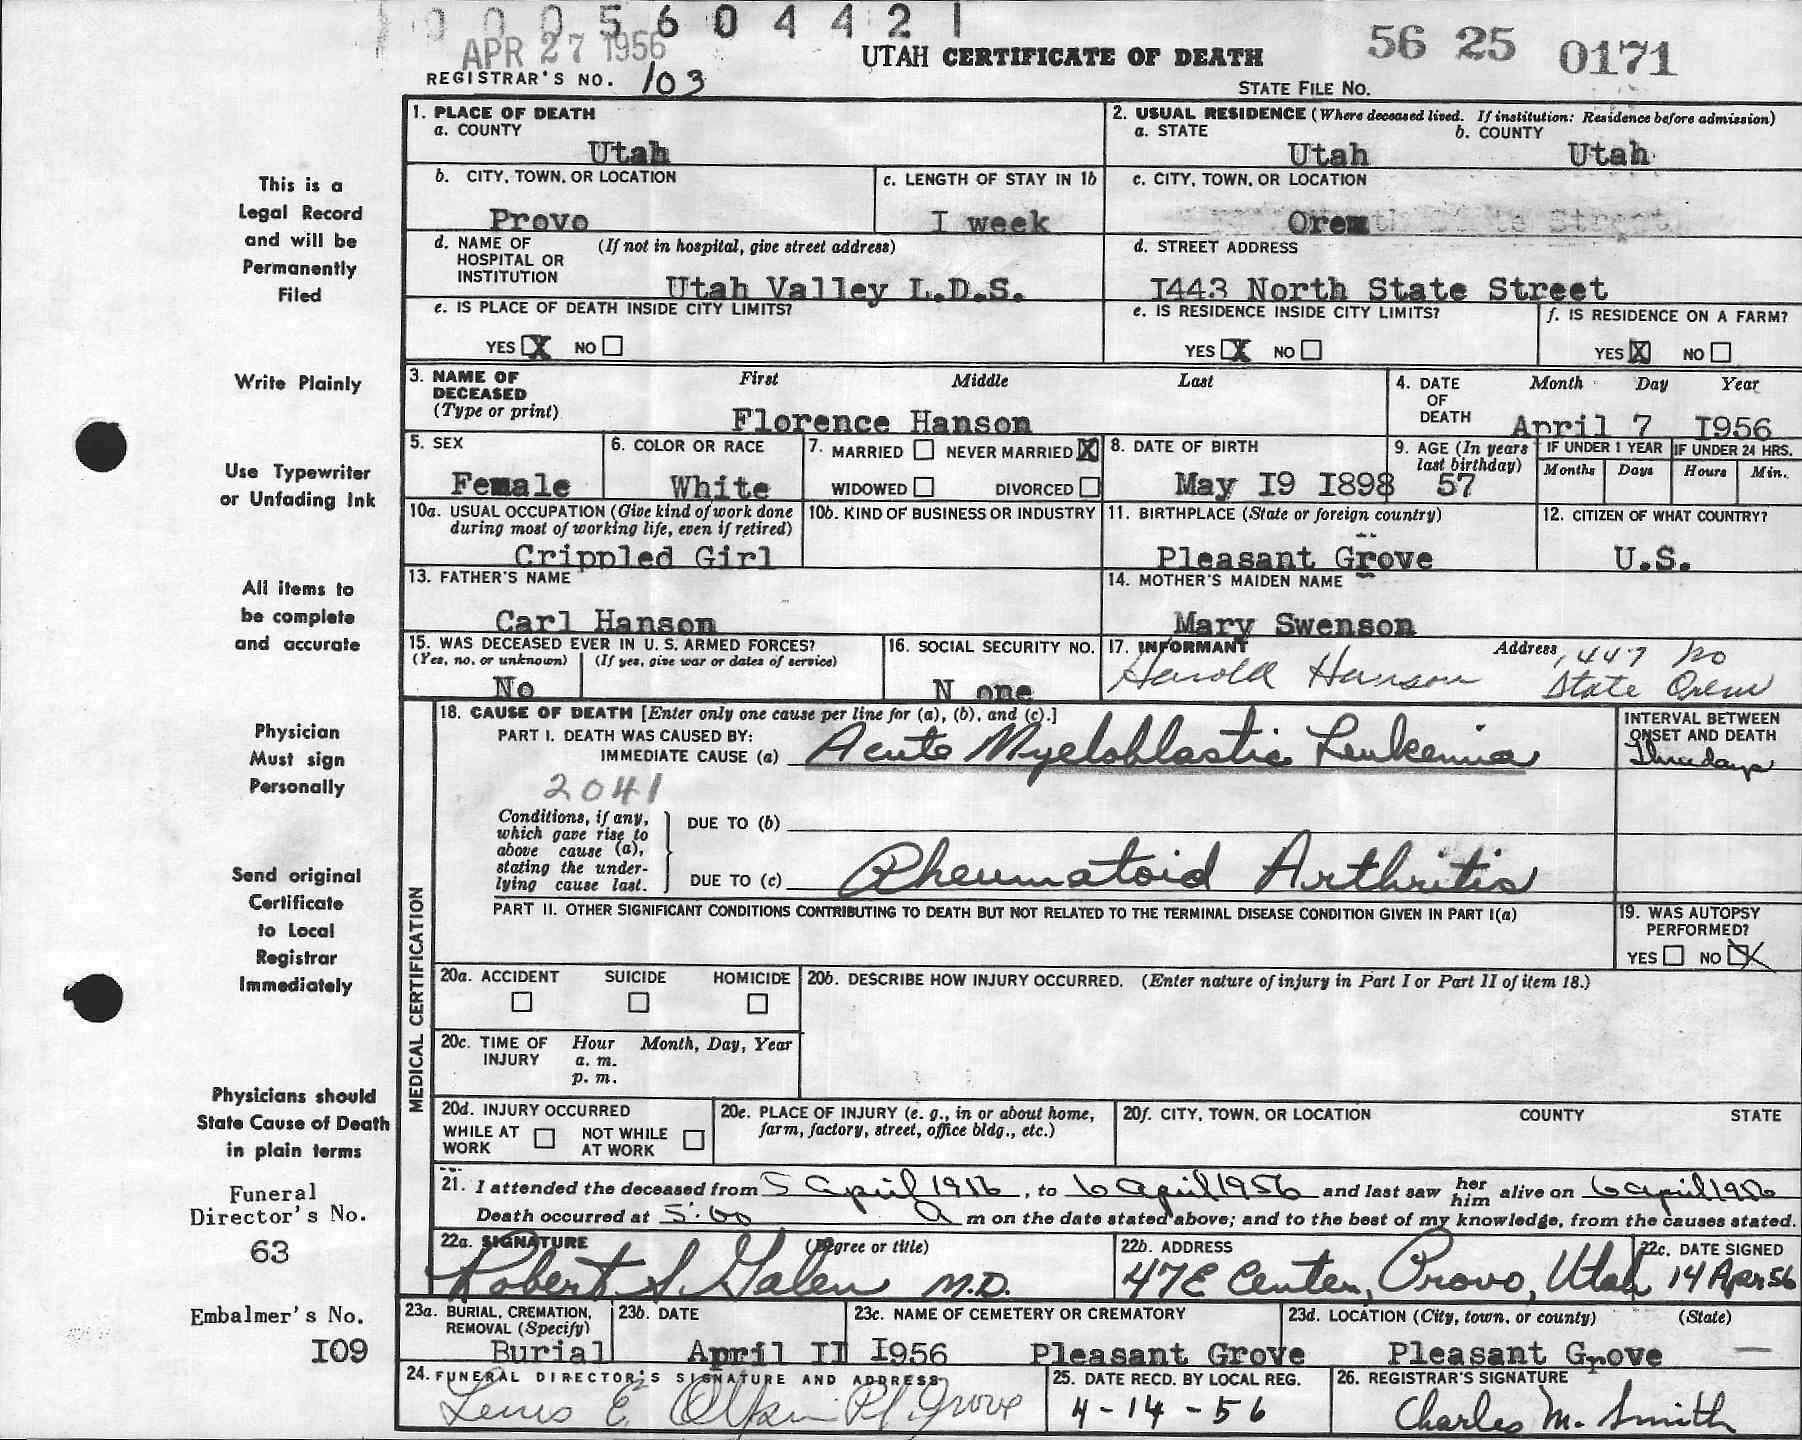 0 0 0 5 6 0 4 4 2 1
APR 27 1956
UTAH CERTIFICATE OF DEATH
56 25 0171
REGISTRAR'S NO. 103
STATE FILE NO.
1. PLACE OF DEATH
a. COUNTY
Utah
2. USUAL RESIDENCE (Where deceased lived. If institution: Residence before admission)
a. STATE b. COUNTY
Utah Utah
b. CITY, TOWN, OR LOCATION
Provo
c. LENGTH OF STAY IN 1b
I week
c. CITY, TOWN, OR LOCATION
Orem
d. NAME OF HOSPITAL OR INSTITUTION (If not in hospital, give street address)
Utah Valley L.D.S.
d. STREET ADDRESS
I443 North State Street
e. IS PLACE OF DEATH INSIDE CITY LIMITS?
YES X NO
e. IS RESIDENCE INSIDE CITY LIMITS?
YES X NO
f. IS RESIDENCE ON A FARM?
YES X NO
3. NAME OF DECEASED (Type or print)
First Middle Last
Florence Hanson
4. DATE OF DEATH
Month Day Year
April 7 I956
5. SEX
Female
6. COLOR OR RACE
White
7. MARRIED NEVER MARRIED X
WIDOWED DIVORCED
8. DATE OF BIRTH
May I9 I898
9. AGE (In years last birthday)
57
IF UNDER 1 YEAR
Months Days
IF UNDER 24 HRS.
Hours Min.
10a. USUAL OCCUPATION (Give kind of work done during most of working life, even if retired)
Crippled Girl
10b. KIND OF BUSINESS OR INDUSTRY
11. BIRTHPLACE (State or foreign country)
Pleasant Grove
12. CITIZEN OF WHAT COUNTRY?
U.S.
13. FATHER'S NAME
Carl Hanson
14. MOTHER'S MAIDEN NAME
Mary Swenson
15. WAS DECEASED EVER IN U. S. ARMED FORCES?
(Yes, no, or unknown) (If yes, give war or dates of service)
No
16. SOCIAL SECURITY NO.
N one
17. INFORMANT Address
Harold Hanson 1447 No
State Orem
MEDICAL CERTIFICATION
18. CAUSE OF DEATH [Enter only one cause per line for (a), (b), and (c).]
PART I. DEATH WAS CAUSED BY:
IMMEDIATE CAUSE (a) Acute Myeloblastic Leukemia
INTERVAL BETWEEN ONSET AND DEATH
Three days
2041
Conditions, if any, which gave rise to above cause (a), stating the underlying cause last.
DUE TO (b)
DUE TO (c) Rheumatoid Arthritis
PART II. OTHER SIGNIFICANT CONDITIONS CONTRIBUTING TO DEATH BUT NOT RELATED TO THE TERMINAL DISEASE CONDITION GIVEN IN PART I(a)
19. WAS AUTOPSY PERFORMED?
YES NO X
20a. ACCIDENT SUICIDE HOMICIDE
20b. DESCRIBE HOW INJURY OCCURRED. (Enter nature of injury in Part I or Part II of item 18.)
20c. TIME OF INJURY Hour Month, Day, Year
a. m.
p. m.
20d. INJURY OCCURRED
WHILE AT WORK NOT WHILE AT WORK
20e. PLACE OF INJURY (e. g., in or about home, farm, factory, street, office bldg., etc.)
20f. CITY, TOWN, OR LOCATION COUNTY STATE
21. I attended the deceased from 5 April 1956, to 6 April 1956 and last saw her him alive on 6 April 1956
Death occurred at 5:00 A m on the date stated above; and to the best of my knowledge, from the causes stated.
22a. SIGNATURE (Degree or title)
Robert S. Galen M.D.
22b. ADDRESS
47 E Center, Provo, Utah
22c. DATE SIGNED
14 Apr 56
23a. BURIAL, CREMATION, REMOVAL (Specify)
Burial
23b. DATE
April II I956
23c. NAME OF CEMETERY OR CREMATORY
Pleasant Grove
23d. LOCATION (City, town, or county) (State)
Pleasant Grove
24. FUNERAL DIRECTOR'S SIGNATURE AND ADDRESS
E Pl. Grove
25. DATE RECD. BY LOCAL REG.
4-14-56
26. REGISTRAR'S SIGNATURE
Charles M. Smith
This is a
Legal Record
and will be
Permanently
Filed
Write Plainly
Use Typewriter
or Unfading Ink
All items to
be complete
and accurate
Physician
Must sign
Personally
Send original
Certificate
to Local
Registrar
Immediately
Physicians should
State Cause of Death
in plain terms
Funeral
Director's No.
63
Embalmer's No.
I09